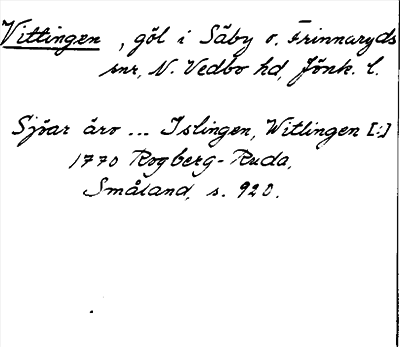 Vittingen, göl i Säby o. Frinnaryds
snr, N. Vedbo hd, Jönk. l.
Sjöar äro ... Islingen, Witlingen [:]
1770 Rogberg-Ruda,
Småland, s. 920.